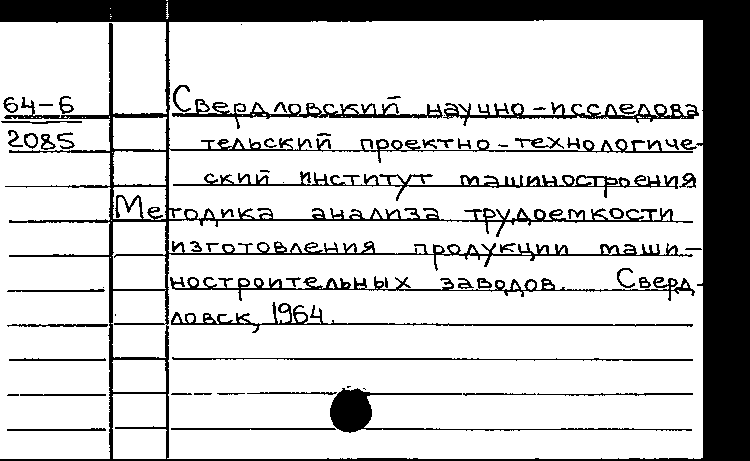 64-6 Свердловский научно-исследова
2085 тельский проектно-технологиче-
ский институт машиностроения
Методика анализа трудоемкости
изготовления продукции маши-
ностроительных заводов. Сверд-
ловск, 1964.